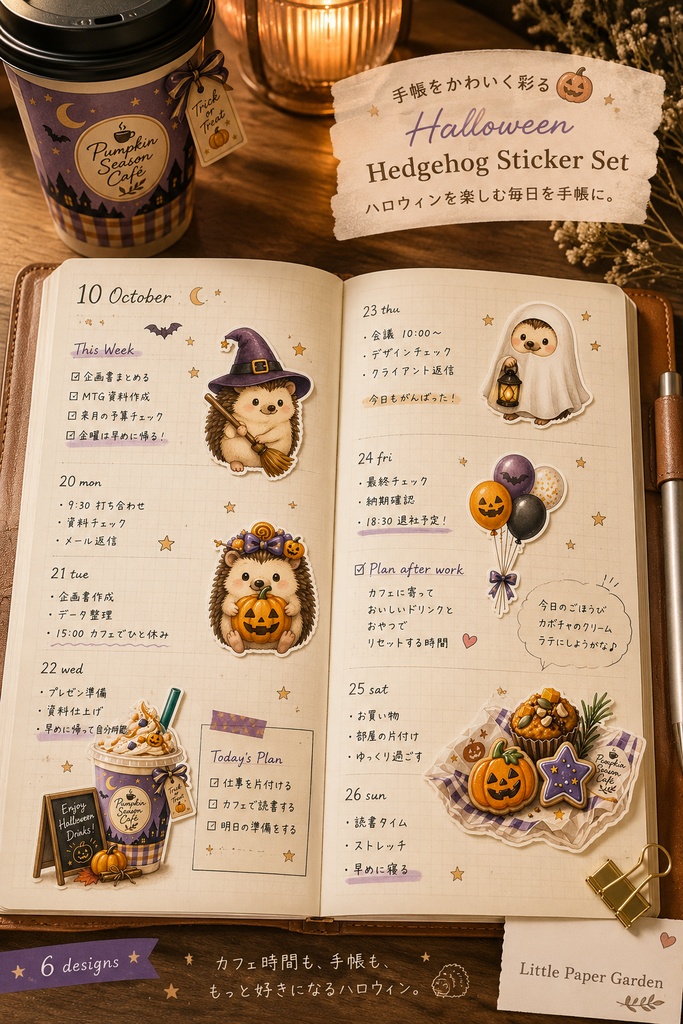 Pumpkin
Season
Café
Trick
or
Treat
手帳をかわいく彩る
Halloween
Hedgehog Sticker Set
ハロウィンを楽しむ毎日を手帳に。
10 October
This Week
企画書まとめる
MTG 資料作成
来月の予算チェック
金曜は早めに帰る!
20 mon
・9:30 打ち合わせ
・資料チェック
・メール返信
21 tue
・企画書作成
・データ整理
・15:00 カフェでひと休み
22 wed
・プレゼン準備
・資料仕上げ
・早めに帰って自分時間
Enjoy
Halloween
Drinks!
Pumpkin
Season
Café
Trick
or
Treat
Today's Plan
仕事を片付ける
カフェで読書する
明日の準備をする
23 thu
・会議 10:00〜
・デザインチェック
・クライアント返信
今日もがんばった!
24 fri
・最終チェック
・納期確認
・18:30 退社予定!
Plan after work
カフェに寄って
おいしいドリンクと
おやつで
リセットする時間
今日のごほうび
カボチャのクリーム
ラテにしようがな♪
25 sat
・お買い物
・部屋の片付け
・ゆっくり過ごす
Pumpkin
Season
Café
26 sun
・読書タイム
・ストレッチ
・早めに寝る
6 designs
カフェ時間も、手帳も、
もっと好きになるハロウィン。
Little Paper Garden